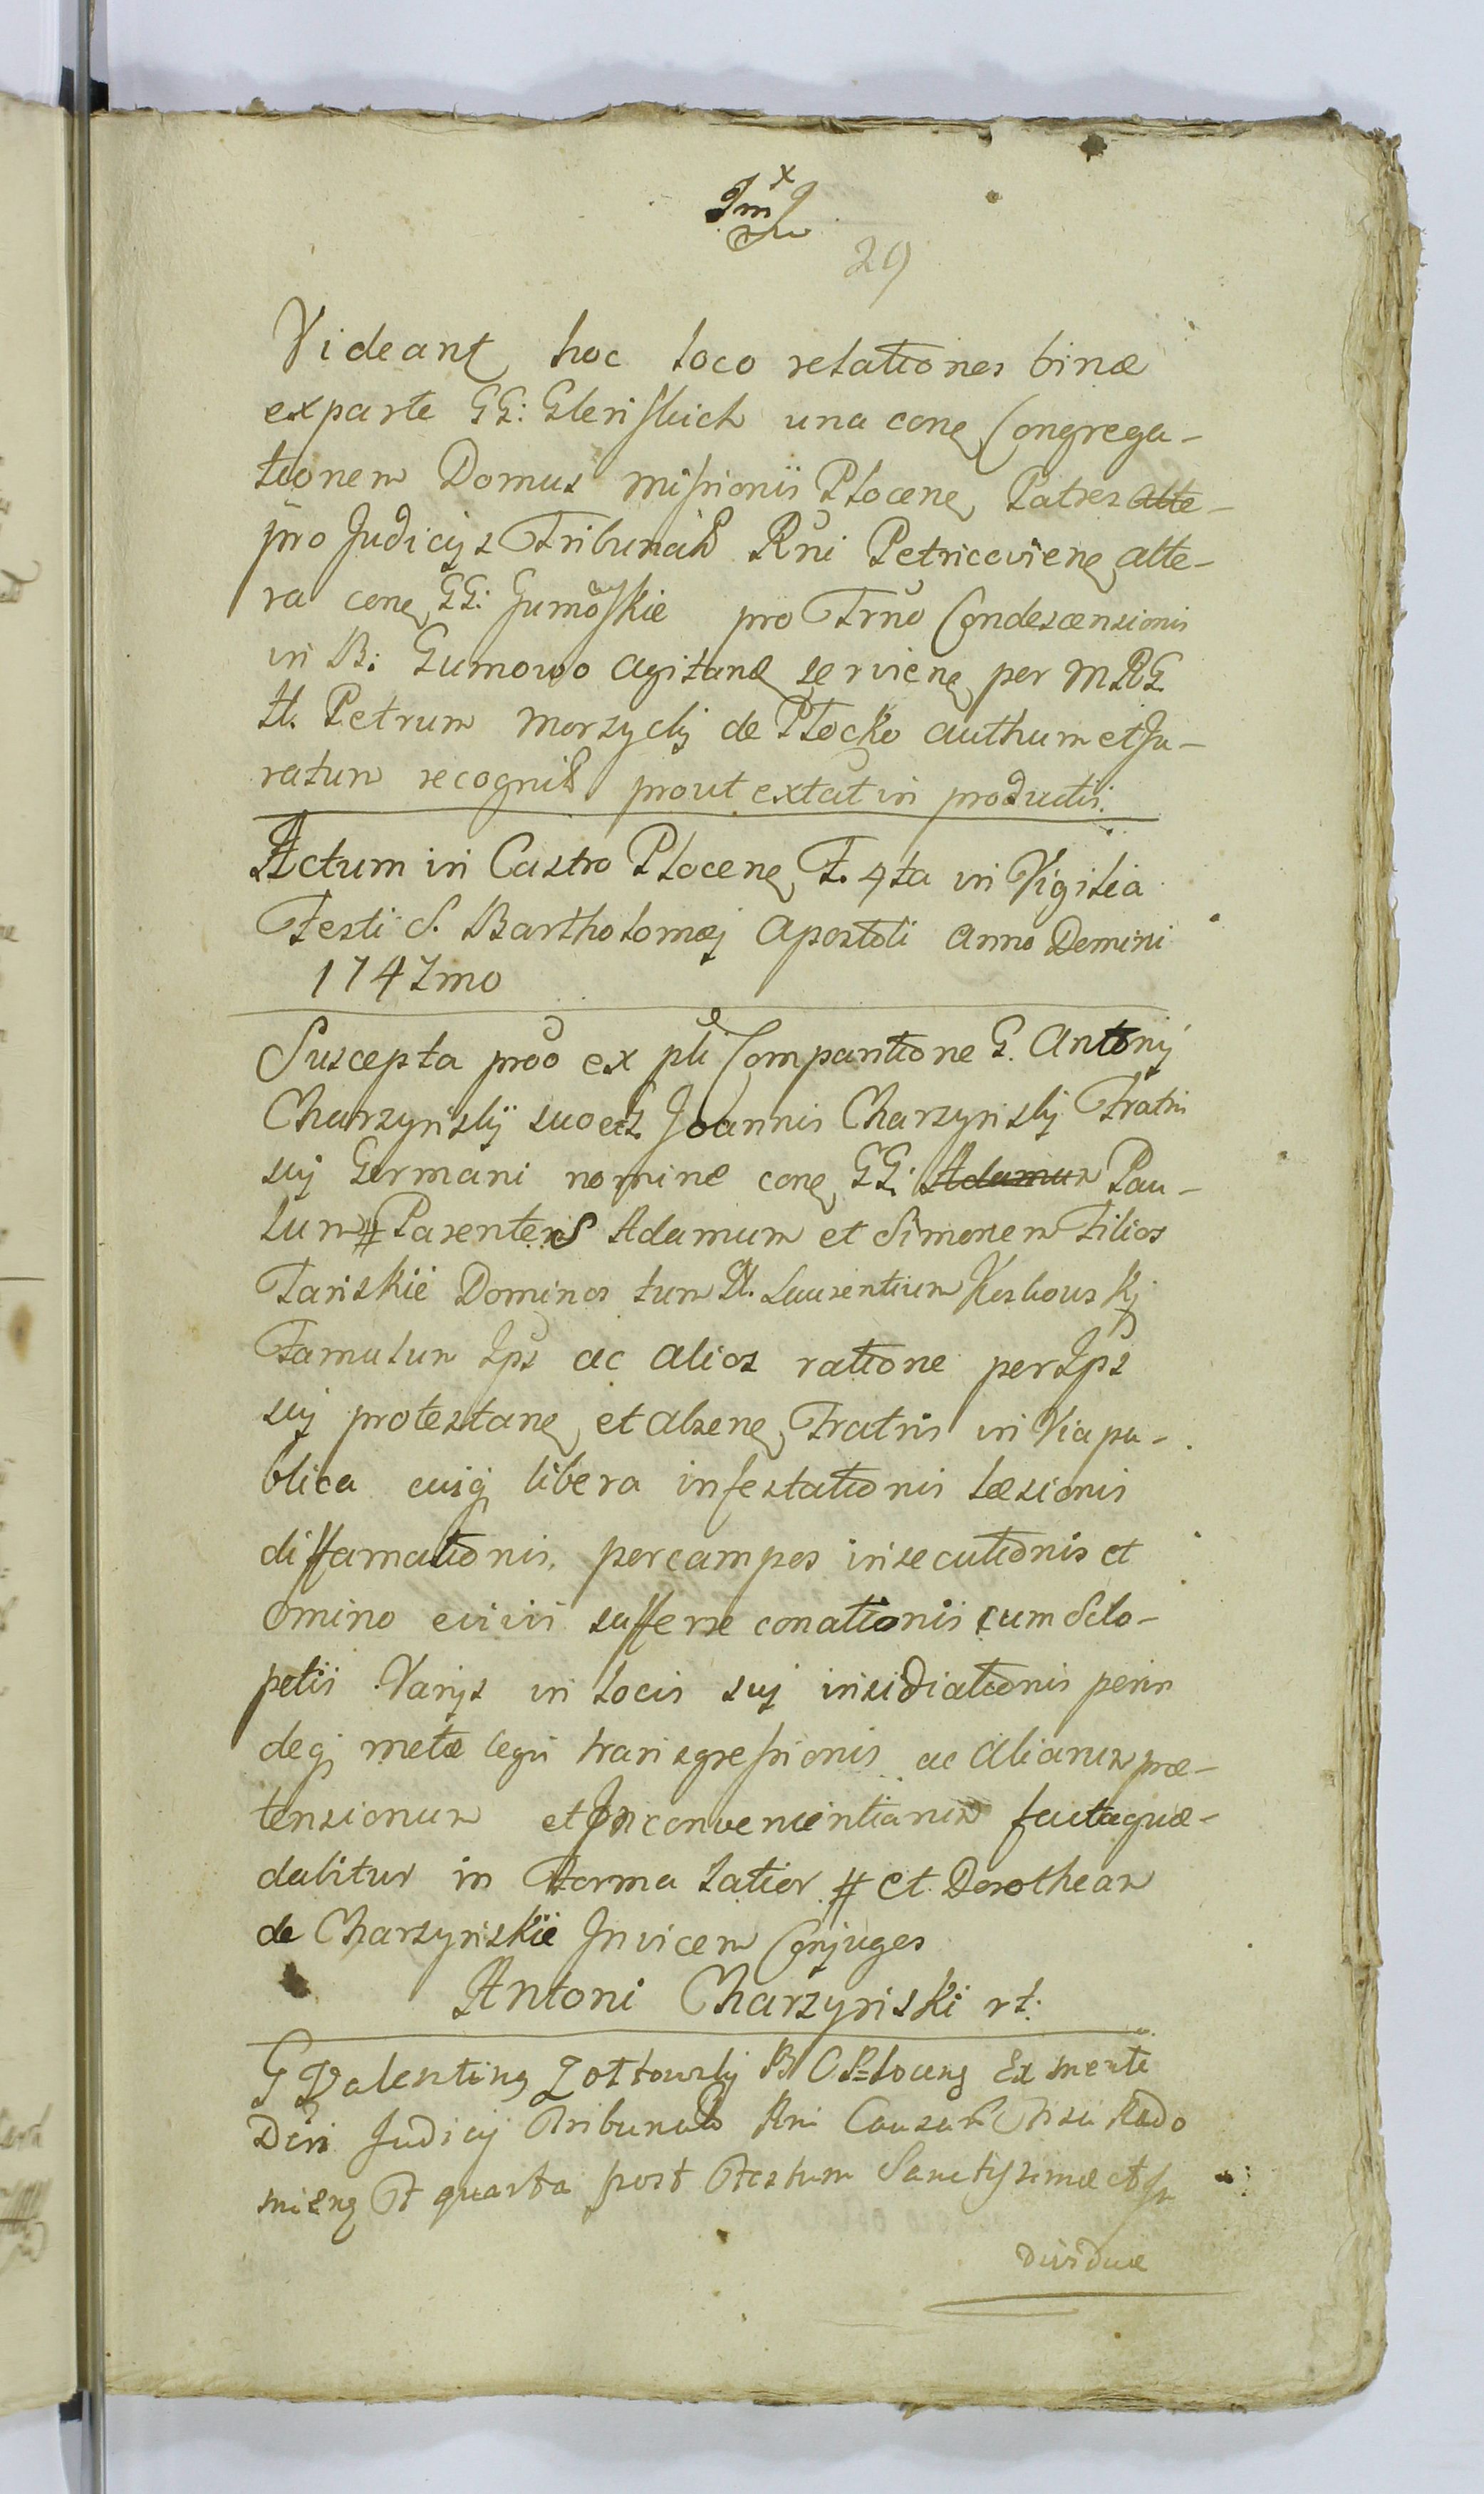 29
Videant hoc loco relationes binæ
ex parte GG: Glinskich una cone Congrega-
tionem Domus Missionis Plocene Patres alte-
pro Judicijs Tribunalb Rni Petricoviene alte-
ra cone GG: Gumowskie pro Trno Condescensionis
in B: Gumowo agitane serviene per MRG
H. Petrum Morzycky de Plocko authum et Ju-
ratum recognib prout extat in productis.
Actum in Castro Plocene F. 4ta in Vigilia
Festi S. Bartholomæj Apostoli Anno Domini
1747mo
Suscepta proo ex pli Compantione G. Antonij
Charzynskij suo et Joannis Charzynskij Fratris
sui Germani nomine cone GG: Adamum Pau-
lum # Parentem Adamum et Simonem Filios
Tanskie Dominos tum H. Laurentium
Famulum Ips ac alios ratione per Ips
sui protestane et absene Fratris in Via pu-
blica cuiq libera infestationis læsionis
diffamationis per campos insecutionis et
omino e vivis sufferre conationis cum Sclo-
petis Varijs in locis sui insidiationis perin
deq metæ legis transgressionis ac aliarum præ-
tensionum et Inconvenientiarum facta quæ-
dabitur in Forma latior # et Dorotheam
de Charzynskie Invicem Conjuges
Antoni Charzynski rt:
G Valentinq Zottowskj B C Plocenq Ex mente
Dcri Judicij Tribunalb Rni Fisci Rado
mienq F quarta post Festum Sanctissimæ et In
dividuæ